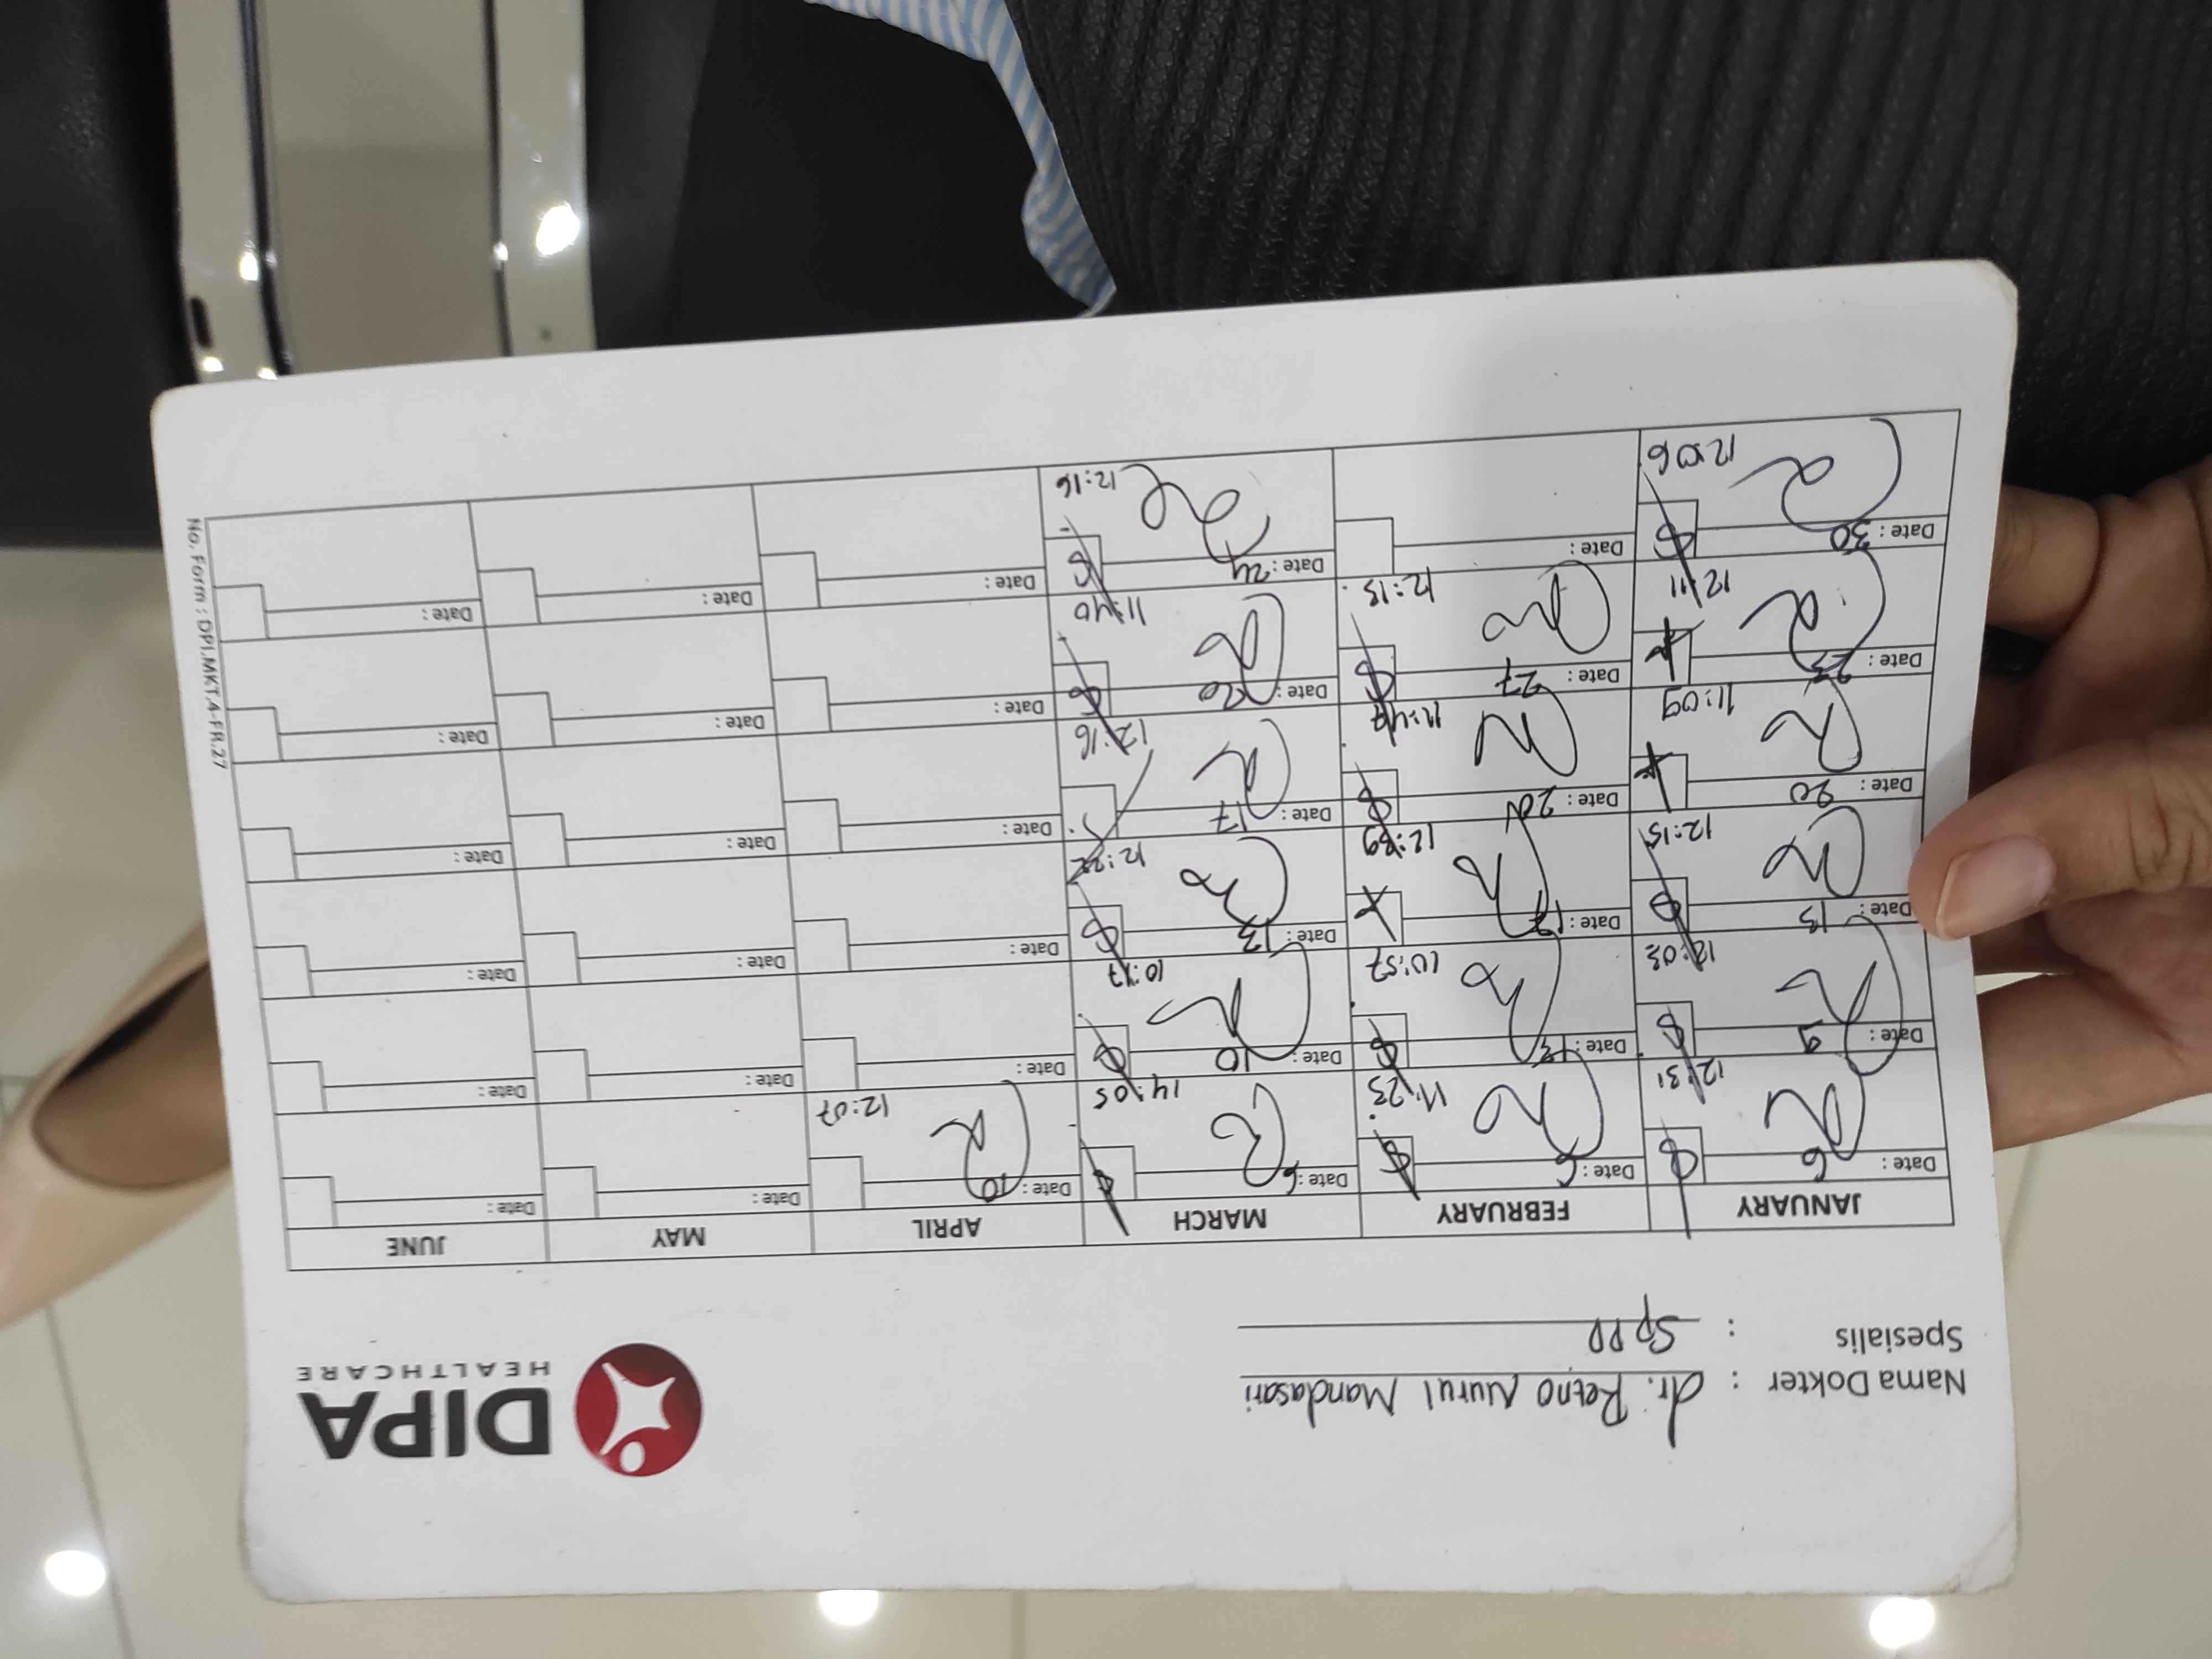 DIPA
HEALTHCARE
Nama Dokter : dr. Retno Nurul Mandasari
Spesialis : Sp PD
JANUARY FEBRUARY MARCH APRIL MAY JUNE
Date : 6 Date : 6 Date : 6 Date : 10 Date : Date :
12:31 11:23 14:05 12:07
Date : 9 Date : 13 Date : 10 Date : Date : Date :
12:03 10:57 10:47
Date : 13 Date : 17 Date : 13 Date : Date : Date :
12:15 12:39 12:22
Date : 20 Date : 20 Date : 17 Date : Date : Date :
11:09 11:47 12:16
Date : 23 Date : 27 Date : 20 Date : Date : Date :
12:11 12:13 11:40
Date : 30 Date : Date : 24 Date : Date : Date :
12:06 12:16
No. Form : DPI.MKT.4-FR.27